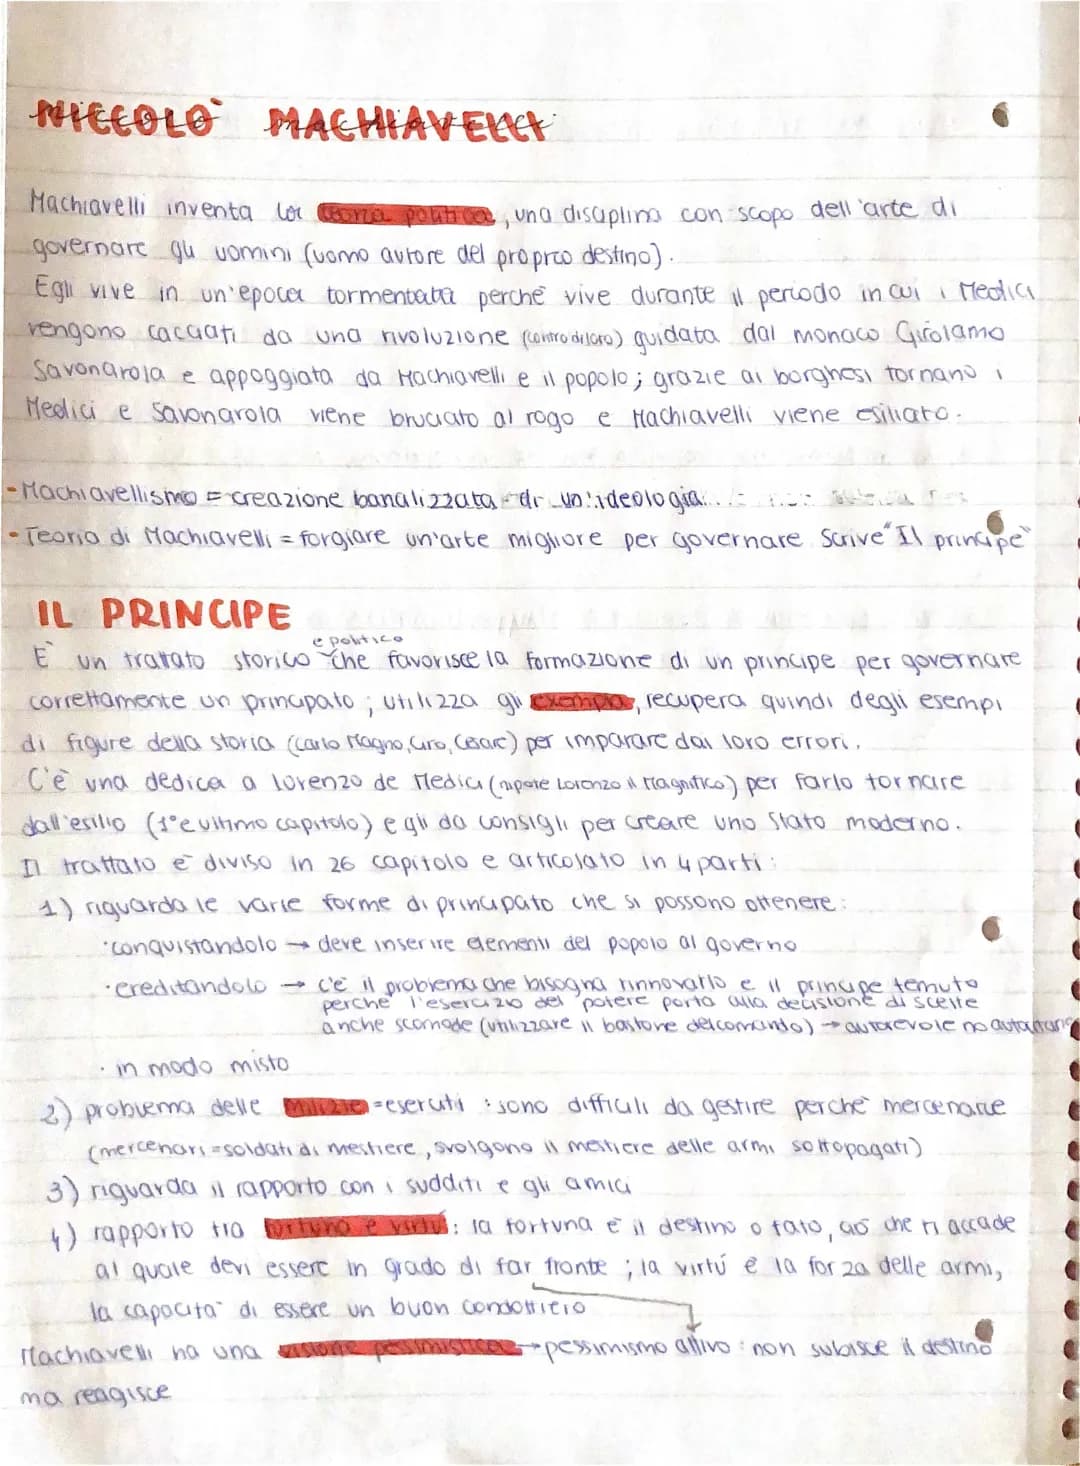 NICCOLÒ MACHIAVELLI
Machiavelli inventa la teoria politica, una disciplina con scopo dell'arte di
governare gli uomini (uomo autore del proprio destino).
Egli vive in un'epoca tormentata perché vive durante il periodo in cui i Medici
vengono cacciati da una rivoluzione (contro di loro) guidata dal monaco Girolamo
Savonarola e appoggiata da Machiavelli e il popolo; grazie ai borghesi tornano i
Medici e Savonarola viene bruciato al rogo e Machiavelli viene esiliato.
- Machiavellismo = creazione banalizzata di un'ideologia
- Teoria di Machiavelli = forgiare un'arte migliore per governare. Scrive "Il principe"
IL PRINCIPE
e politico
È un trattato storico che favorisce la formazione di un principe per governare
correttamente un principato; utilizza gli exempla, recupera quindi degli esempi
di figure della storia (Carlo Magno, Ciro, Cesare) per imparare dai loro errori.
C'è una dedica a Lorenzo de Medici (nipote Lorenzo il Magnifico) per farlo tornare
dall'esilio (1° e ultimo capitolo) e gli da consigli per creare uno Stato moderno.
Il trattato è diviso in 26 capitolo e articolato in 4 parti:
1) riguarda le varie forme di principato che si possono ottenere:
· conquistandolo → deve inserire elementi del popolo al governo
· ereditandolo → c'è il problema che bisogna rinnovarlo e il principe temuto
perché l'esercizio del potere porta alla decisione di scelte
anche scomode (utilizzare il bastone del comando) → autorevole no autoritario
· in modo misto
2) problema delle milizie = eserciti: sono difficili da gestire perché mercenarie
(mercenari = soldati di mestiere, svolgono il mestiere delle armi sottopagati)
3) riguarda il rapporto con i sudditi e gli amici
4) rapporto tra fortuna e virtú: la fortuna è il destino o fato, ciò che ti accade
al quale devi essere in grado di far fronte; la virtú è la forza delle armi,
la capacita di essere un buon condottiero
Machiavelli ha una visione pessimistica → pessimismo attivo: non subisce il destino
ma reagisce